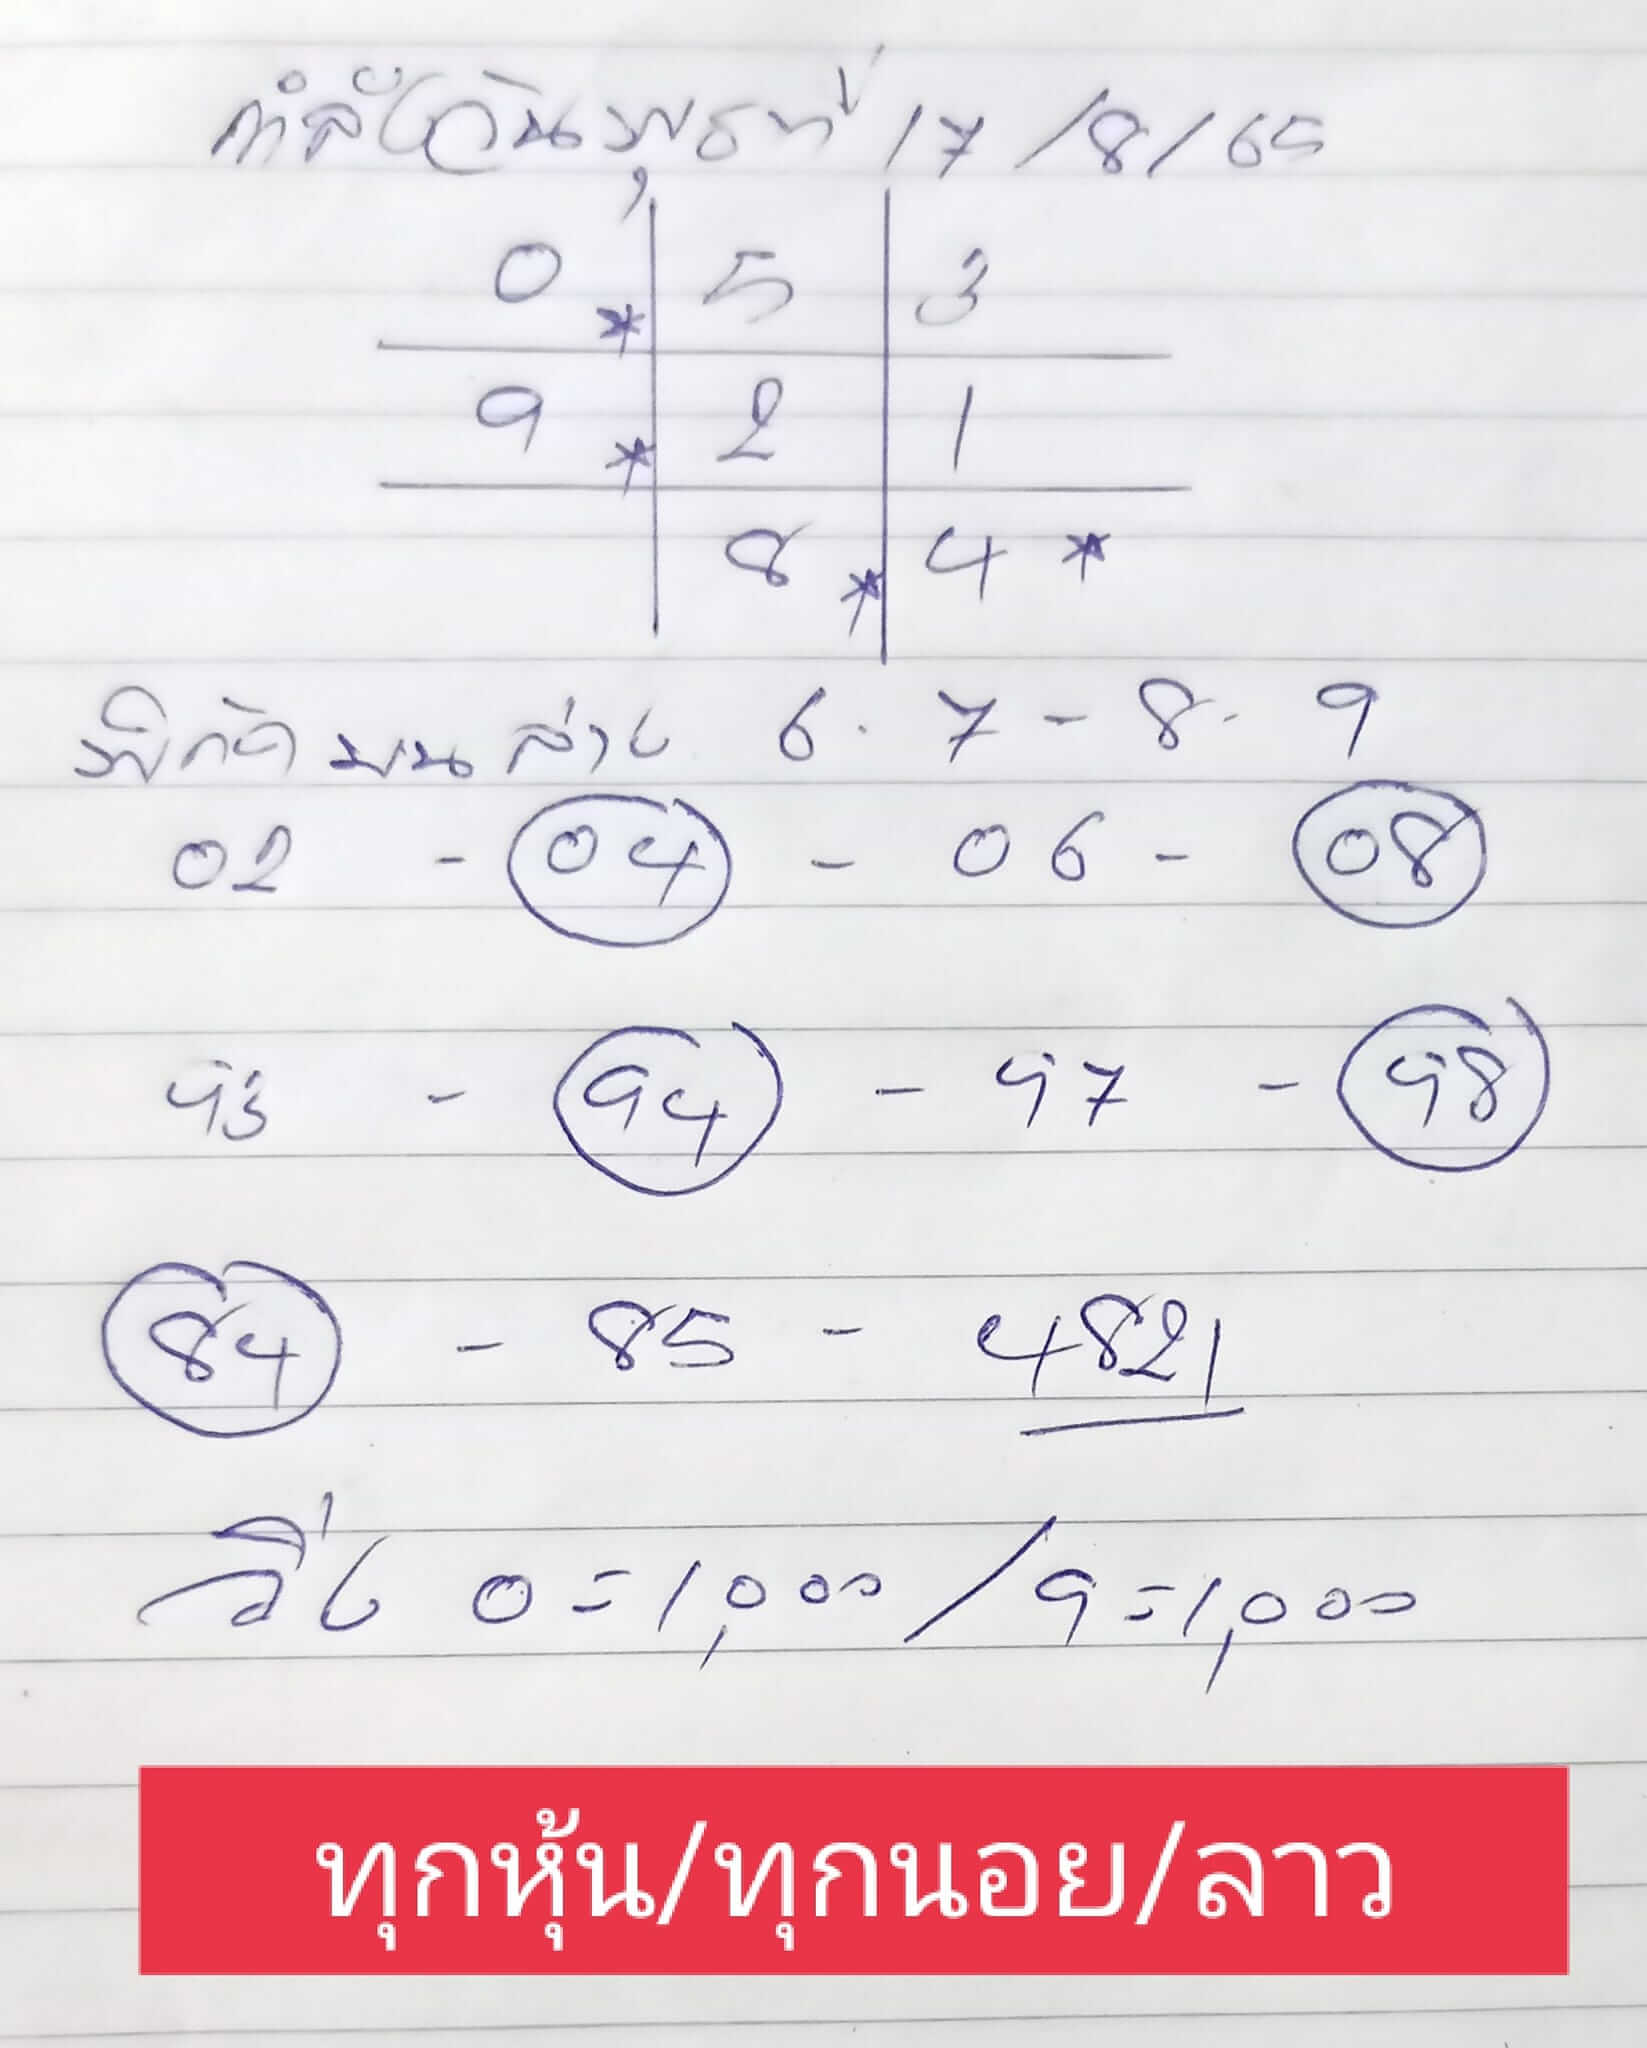 กำลังวันพุธที่ 17/8/65
0 * 5 3
9 * 2 1
8 * 4 *
พิกัด บน ล่าง 6 . 7 - 8 . 9
02 - 04 - 06 - 08
93 - 94 - 97 - 98
84 - 85 - 4821
วิ่ง 0 = 1,000 / 9 = 1,000
ทุกหุ้น/ทุกนอย/ลาว